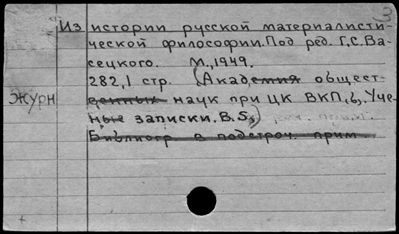 Из истории русской материалисти-
ческой философии. Под ред. Г.С. Ва-
сецкого. М., 1949.
282,1 стр. (Академия общест-
Журн венных наук при ЦК ВКП,б, Уче-
ные записки. В.5,)
Библиогр в подстроч. прим.